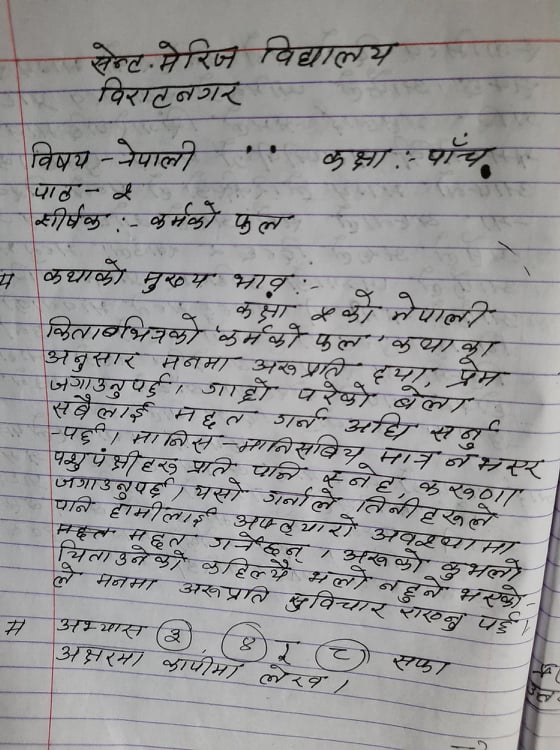 सेन्ट मेरिज विद्यालय
विराटनगर
विषय - नेपाली कक्षा :- पाँच
पाठ - २
शीर्षक :- कर्मको फल
कथाको मुख्य भाव :-
कक्षा ५को नेपाली
किताबभित्रको 'कर्मको फल' कथाका
अनुसार मनमा अरूप्रति दया, प्रेम
जगाउनुपर्छ। गाह्रो परेको बेला
सबैलाई मद्दत गर्न अघि सर्नु
-पर्छ। मानिस-मानिसबिच मात्र नभएर
पशुपंक्षीहरू प्रति पनि स्नेह, करूणा
जगाउनुपर्छ। यसो गर्नाले तिनीहरूले
पनि हामीलाई अप्ठ्यारो अवस्थामा
मद्दत गर्नेछन्। अरूको कुभलो
चिताउनेको कहिल्यै भलो नहुने भएको-
ले मनमा अरूप्रति सुविचार राख्नु पर्छ।
अभ्यास ३, ४ र ८ सफा
अक्षरमा कापीमा लेख।